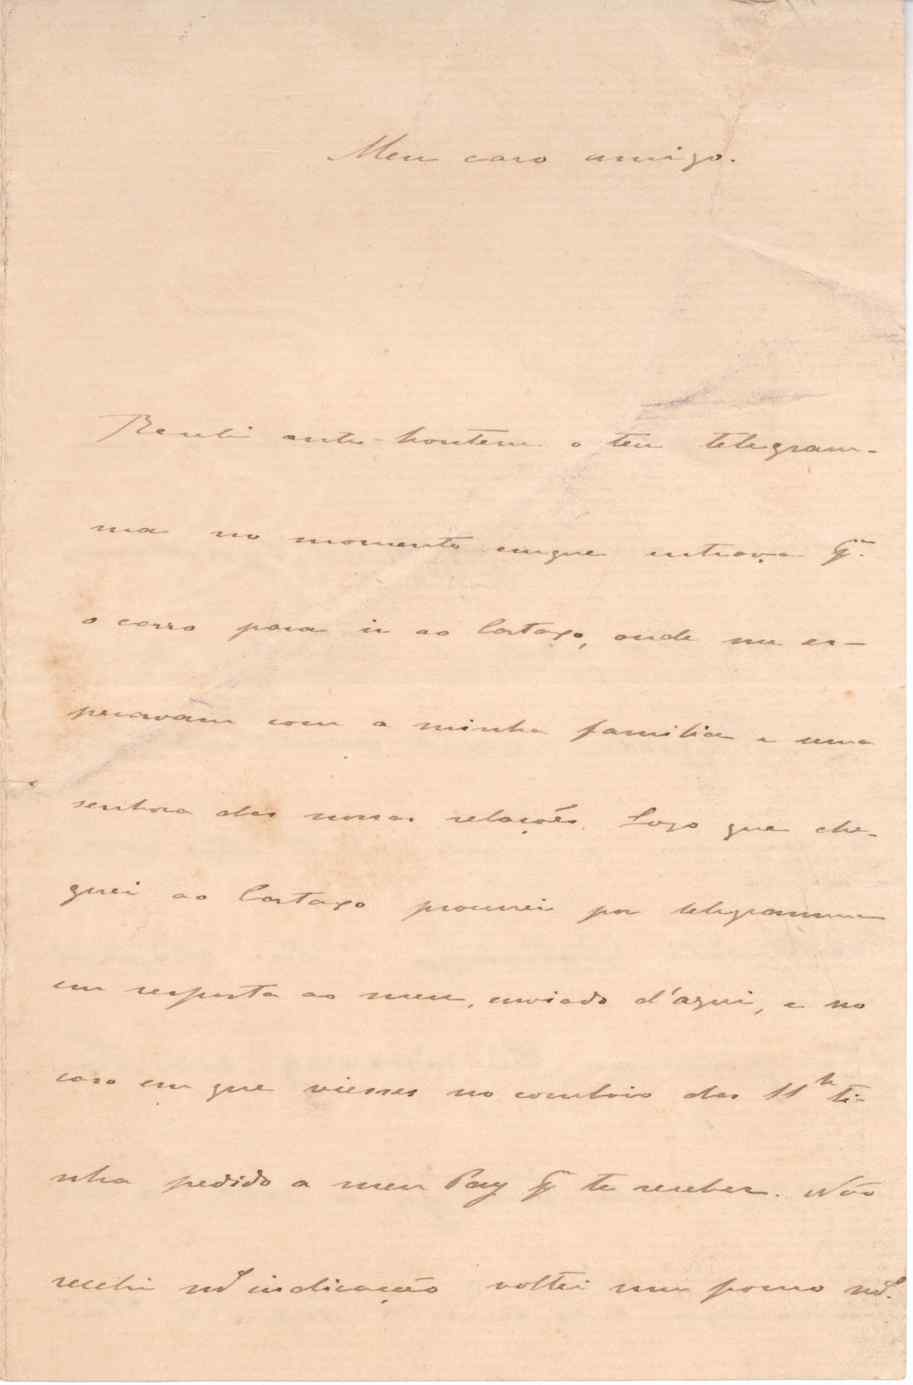 Meu caro amigo.
Recebi ante-hontem o teu telegram-
ma no momento emque entrava p.ª
o carro para ir ao Cartaxo, onde me es-
peravam com a minha familia e uma
senhora das nossas relações. Logo que che-
guei ao Cartaxo procurei por telegramma
em resposta ao meu, enviado d'aqui, e no
caso em que viesses no comboio das 11h ti-
nha pedido a meu Pay p.ª te receber. Não
recebi indicação voltei um pouco